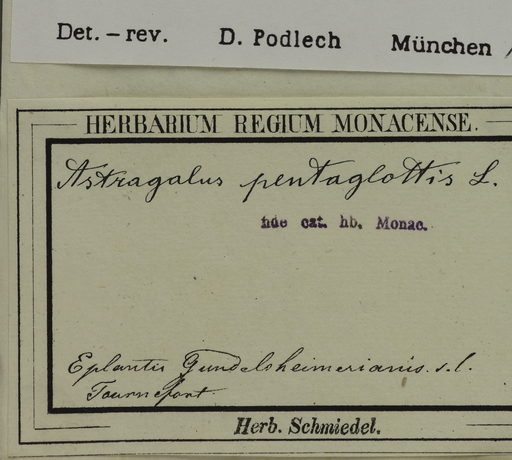 Det. – rev. D. Podlech München
HERBARIUM REGIUM MONACENSE.
Astragalus pentaglottis L.
fide cat. hb. Monac.
E plantis Gundelsheimerianis. s. l.
Tournefort
Herb. Schmiedel.